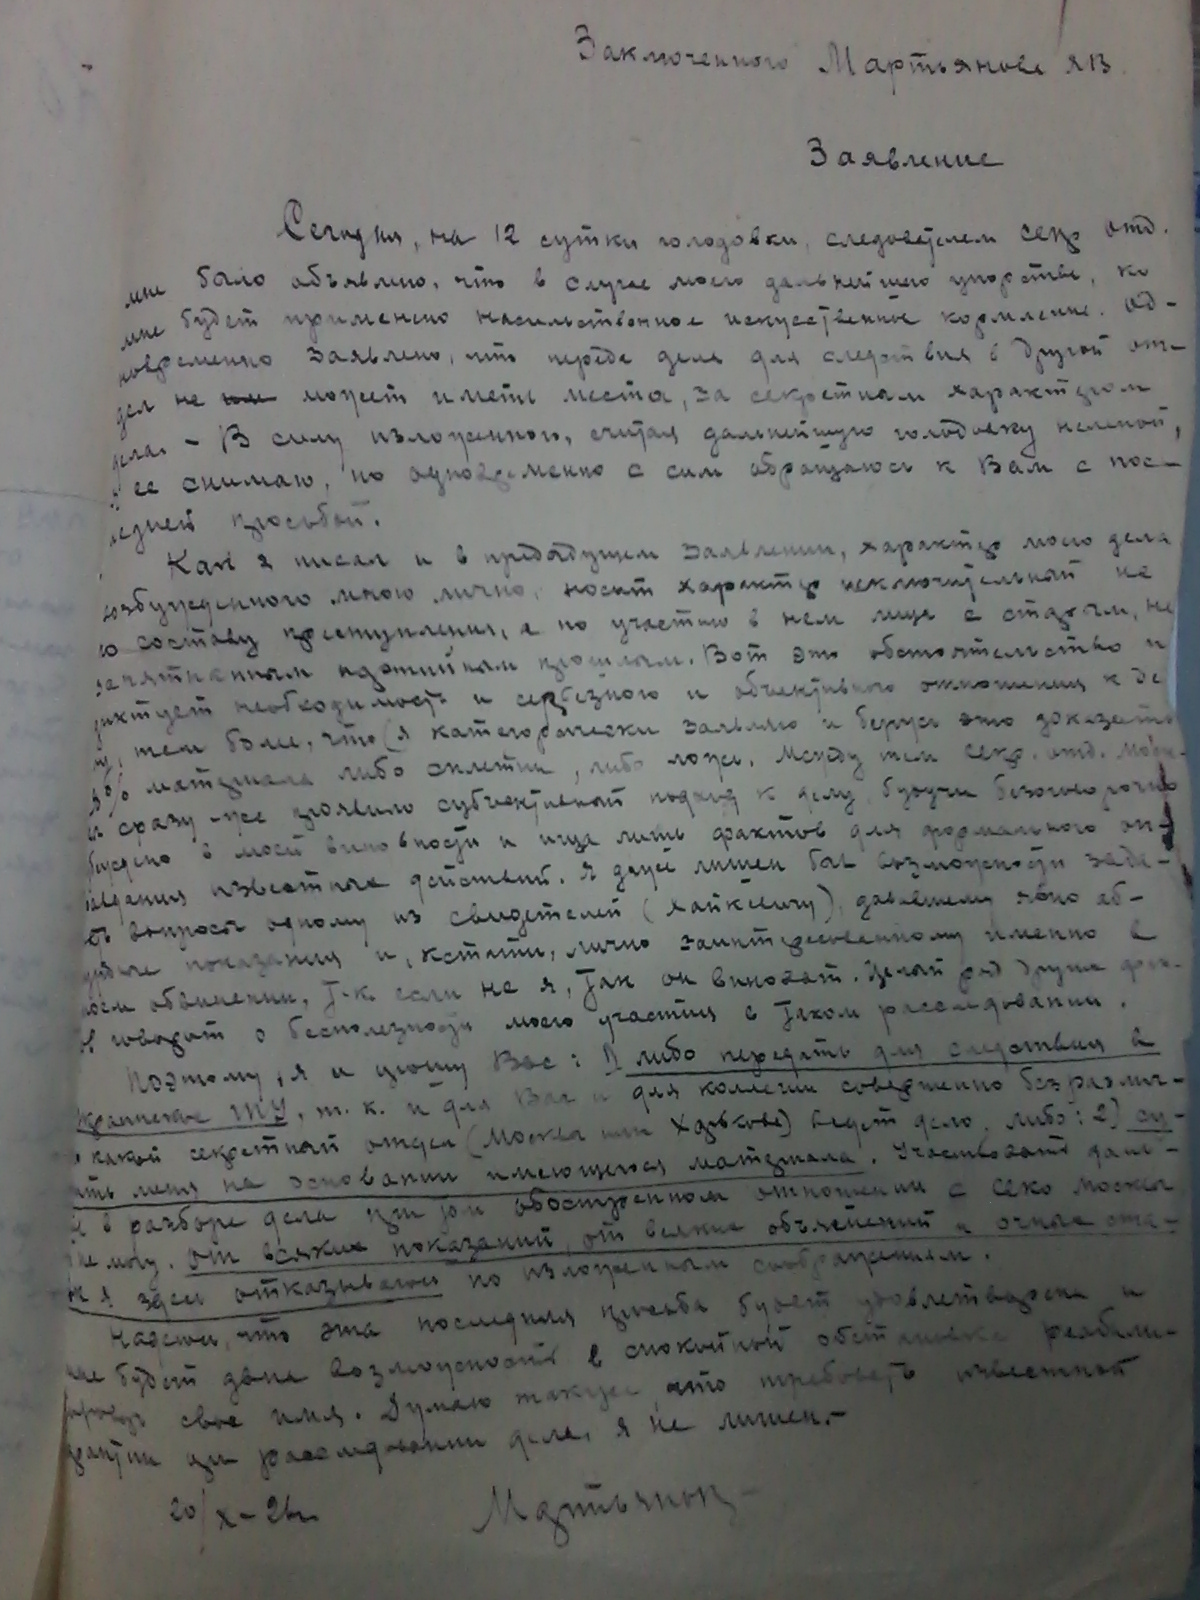 Заключенного Мартьянова Я В.
Заявление
Сегодня, на 12 сутки голодовки, следователем секр отд.
мне было объявлено, что в случае моего дальнейшего упорства, ко
мне будет применено насильственное искусственные кормление. Од-
новременно заявлено, что передача дела для следствия в другой от-
дел не может иметь места, за секретным характером
дела. – В силу изложенного, считая дальнейшую голодовку нелепой,
я ее снимаю, но одновременно с сим обращаюсь к Вам с пос-
ледней просьбой.
Как я писал и в предыдущем заявлении, характер моего дела
возбужденного мною лично, носит характер исключительный не
по составу преступления, а по участию в нем лица с старым, не
запятнанным партийным прошлым. Вот это обстоятельство и
диктует необходимость и серьезного и объективного отношения к де
лу, тем более, что (я категорически заявляю и берусь это доказать
% материала либо сплетни, либо ложь. Между тем секр. отд. Моск-
вы сразу-же проявило субъективный подход к делу, будучи безоговорочно
убеждено в моей виновности и ища лишь фактов для формального оп-
равдания известных действий. Я даже лишен был возможности зада-
ть вопросы одному из свидетелей (Хайкевичу), давшему явно аб-
сурдные показания и, кстати, лично заинтересованному именно в
моем обвинении, т.к. если не я, так он виноват. Целый ряд других фак-
тов говорит о бесполезности моего участия в таком расследовании.
Поэтому, я и прошу Вас: 1) либо передать для следствия в
Украинское ГПУ, т.к. и для Вас и для коллегии совершенно безразлич-
но какой секретный отдел (Москвы или Харькова) ведет дело, либо: 2) су-
дить меня на основании имеющегося материала. Участвовать даль-
ше в разборе дела при том обостренном отношении с секо Москвы
не могу. От всяких показаний, от всяких объяснений и очных ста-
вок я здесь отказываюсь по изложенным соображениям.
Надеюсь, что эта последняя просьба будет удовлетворена и
мне будет дана возможность в спокойной обстановке реабили-
тировать свое имя. Думаю также, что требовать известной
гарантии при расследовании дела, я не лишен.–
20/X – 26г. Мартьянов